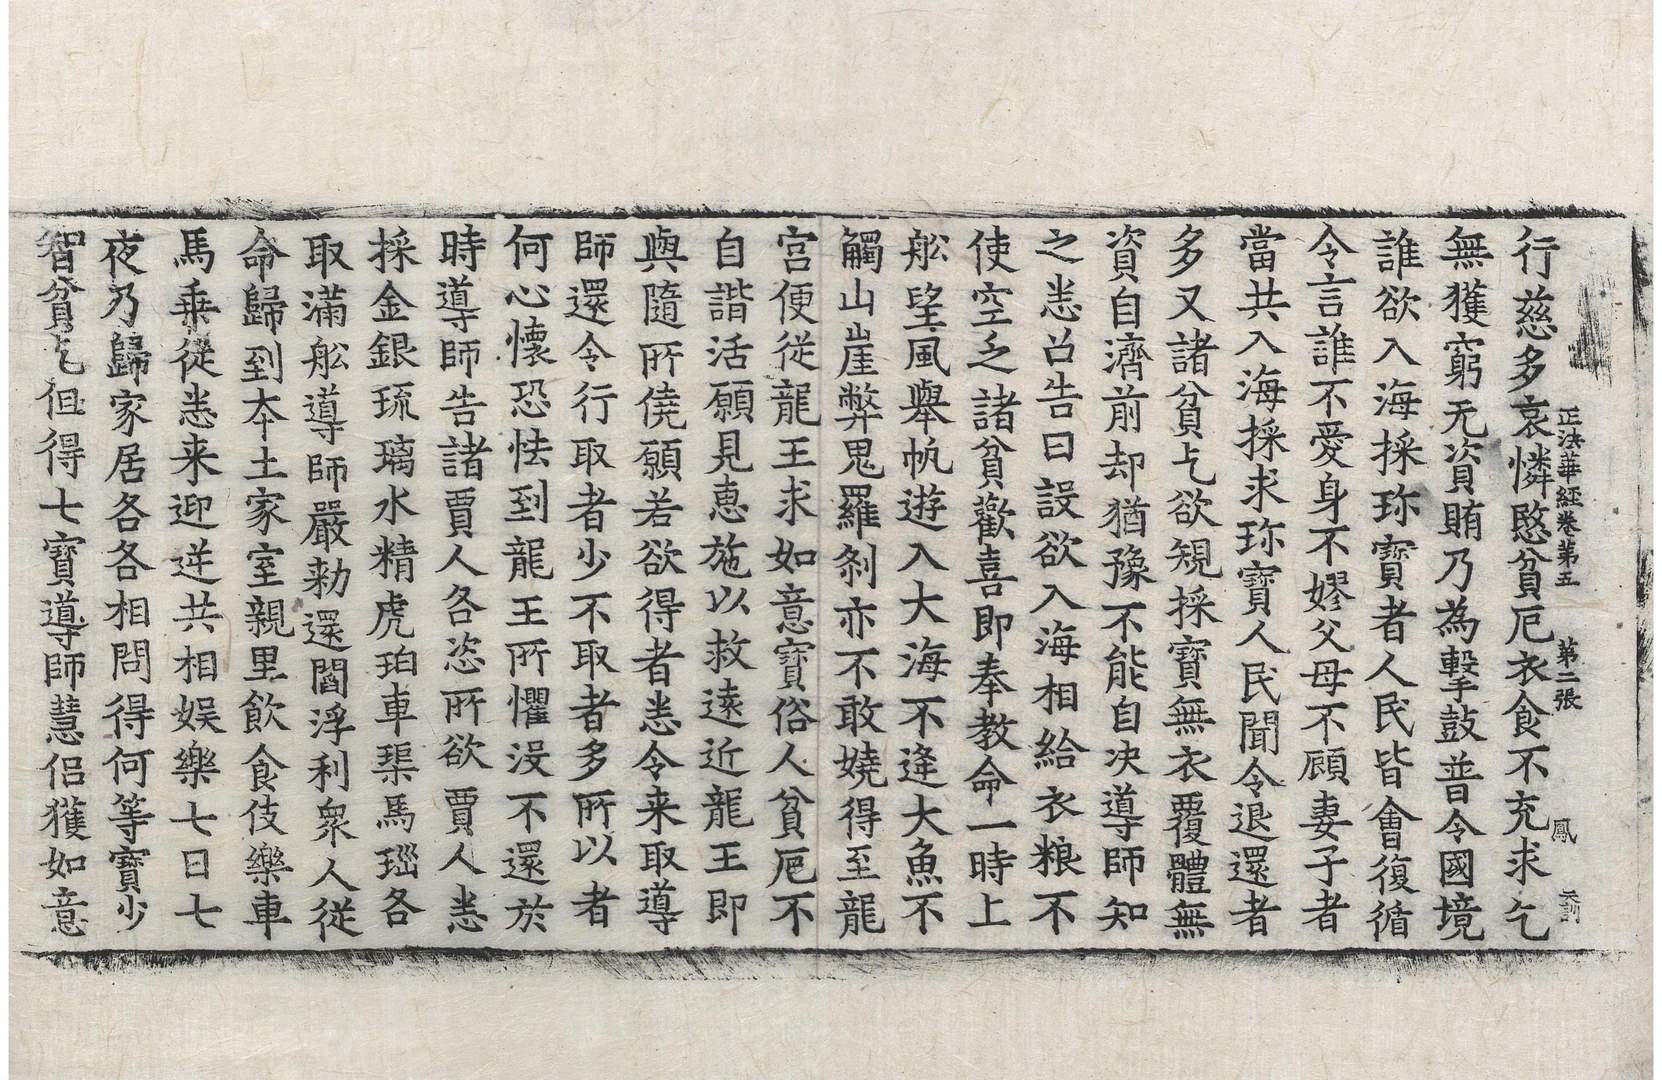 正法華經卷第五　第二張　鳳
行慈多哀憐愍貧厄衣食不充求乞
無獲窮无資賄乃為擊鼓普令國境
誰欲入海採珎寶者人民皆會復循
令言誰不愛身不嫪父母不顧妻子者
當共入海採求珎寶人民聞令退還者
多又諸貧乞欲規採寶無衣覆體無
資自濟前却猶豫不能自决導師知
之悉召告曰設欲入海相給衣粮不
使空乏諸貧歡喜即奉教命一時上
舩望風舉帆遊入大海不逢大魚不
觸山崖弊鬼羅剎亦不敢嬈得至龍
宮便從龍王求如意寶俗人貧厄不
自諧活願見惠施以救遠近龍王即
與隨所僥願若欲得者悉令来取導
師還令行取者少不取者多所以者
何心懷恐怯到龍王所懼没不還於
時導師告諸賈人各恣所欲賈人悉
採金銀琉璃水精虎珀車璖馬瑙各
取滿舩導師嚴勑還閻浮利衆人從
命歸到本土家室親里飲食伎樂車
馬乗從悉来迎逆共相娱樂七日七
夜乃歸家居各各相問得何等寶少
智貧乞但得七寶導師慧侣獲如意